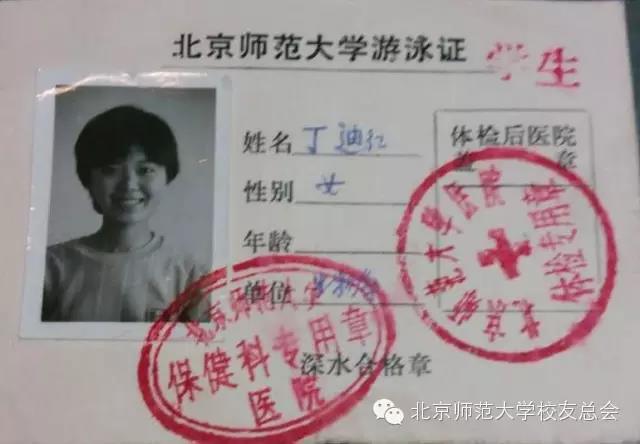 北京师范大学游泳证
学生
姓名 丁迪红
性别 女
年龄
单位 生物系
体检后医院
盖 章
北京师范大学医院
体检专用章
北京师范大学
保健科专用章
医院
深水合格章
北京师范大学校友总会